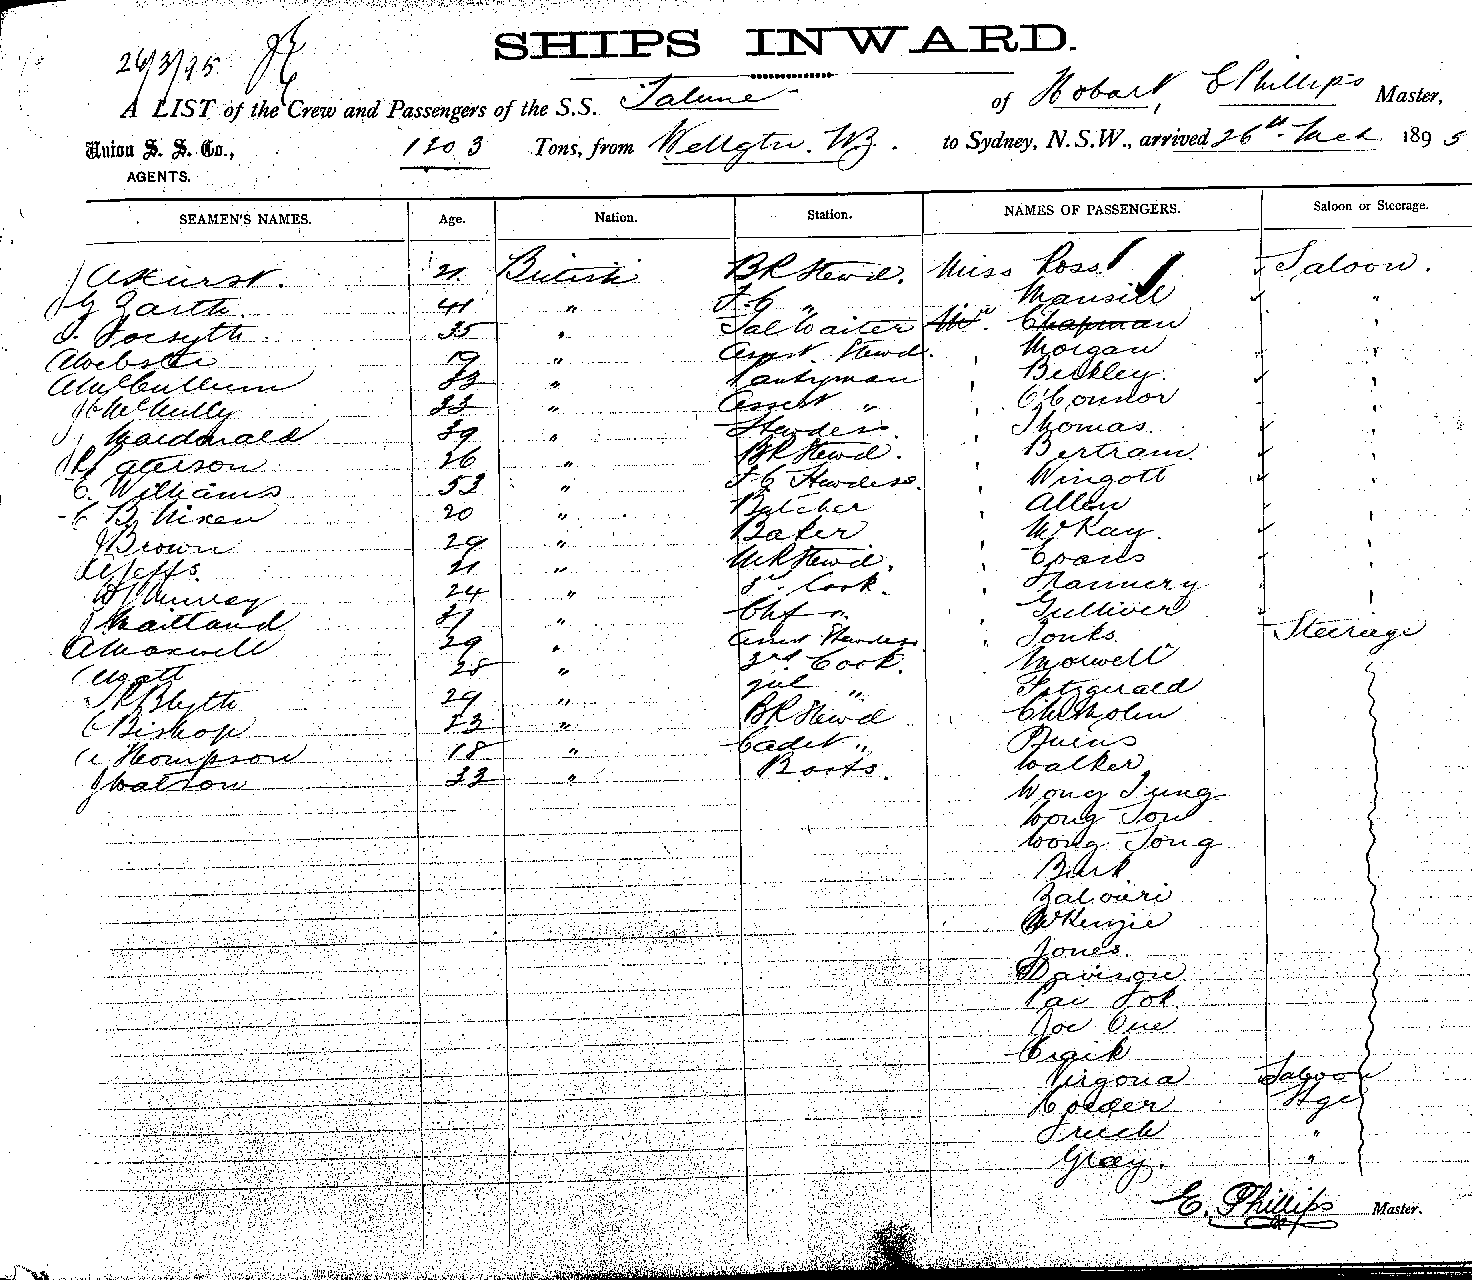 26/3/95
SHIPS INWARD.
A LIST of the Crew and Passengers of the S.S. Talune of Hobart, E Phillips Master,
Union S. S. Co., 1203 Tons, from Wellgtn. NZ. to Sydney, N.S.W., arrived 26th Mch 1895
AGENTS.
SEAMEN'S NAMES. Age. Nation. Station. NAMES OF PASSENGERS. Saloon or Steerage.
Akurst. 21 British BR Stewd. Miss Ross Saloon.
Garth. 41 " F.C " Mansill "
Forsyth 35 " Sal Waiter Mr. Chapman
Webster 19 " Assist. Stewd. Morgan "
A McCullum 33 " Pantryman Berkley. "
McNully 23 " Assist " O'Connor "
Macdonald 39 " Stewdess. Thomas. "
Paterson 26 " BR Stewd. Bertram. "
E. Williams 53 " F C Stewdess. Wingott "
C B Nixen 20 " Butcher Allen "
J Brown 29 " Baker McKay. "
Jeffs. 21 " MR Stewd. Evans "
Murray 24 " 2nd Cook. Flannery "
J Maitland 37 " Chf " Gulliver "
A Maxwell 29 " Assist Stewdess Jonks. Steerage
28 " 3rd Cook. Morwell
Blyth 29 " Jul " Fitzgerald
C Bishop 23 " BR Stewd Chisholm
Thompson 18 " Cadet " Burns
J Watson 33 " Boots. Walker
Wong Tung
Wong Tow
Wong Tong
Burk
Salvieri
McKenzie
Jones.
Davison
Pac Fok
Joe One
Craik
Virgona Saloon
Horder Stge
"
Gray. "
E. Phillips Master.